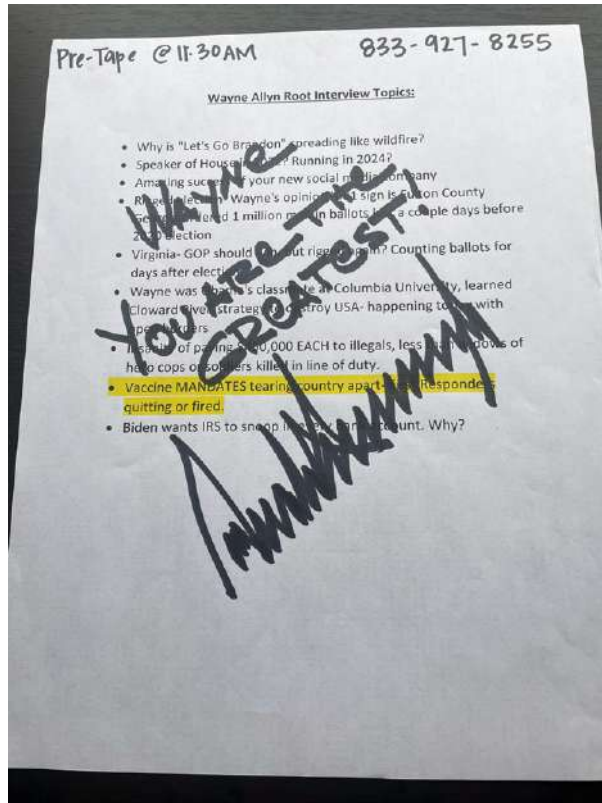 Pre-Tape @ 11:30AM 833-927-8255
Wayne Allyn Root Interview Topics:
• Why is "Let's Go Brandon" spreading like wildfire?
• Speaker of House Running in 2024?
• Amazing success of your new social media company
• Rigged election Wayne's opinion sign is Fulton County
1 million ballots a couple days before
election
• Virginia- GOP should out again? Counting ballots for
days after election
• Wayne was Obama's classmate at Columbia University, learned
Cloward Piven strategy destroy USA- happening with
open borders
• Insanity of paying EACH to illegals, less than widows of
hero cops or soldiers killed in line of duty.
• Vaccine MANDATES tearing country apart- Responders
quitting or fired.
• Biden wants IRS to snoop account. Why?
WAYNE
YOU ARE THE
GREATEST!